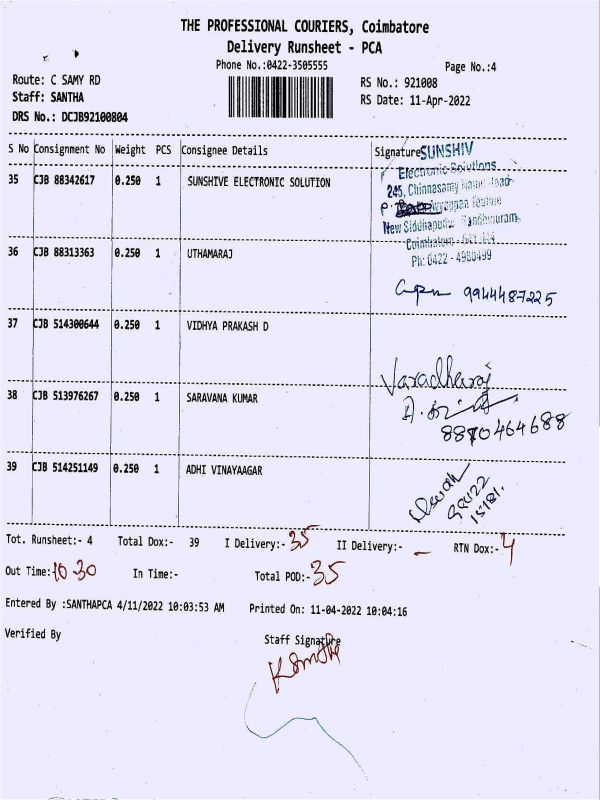 THE PROFESSIONAL COURIERS, Coimbatore
Delivery Runsheet - PCA
Phone No.:0422-3505555
Page No.:4
Route: C SAMY RD
RS No.: 921008
Staff: SANTHA
RS Date: 11-Apr-2022
DRS No.: DCJB92100804
S No Consignment No Weight PCS Consignee Details Signature
SUNSHIV
Electronic Solutions
35 CJB 88342617 0.250 1 SUNSHIVE ELECTRONIC SOLUTION
245, Chinnasamy
New Siddhapudur
36 CJB 88313363 0.250 1 UTHAMARAJ
Coimbatore
Ph: 0422 - 4980499
9944487225
37 CJB 514300644 0.250 1 VIDHYA PRAKASH D
Varadharaj
38 CJB 513976267 0.250 1 SARAVANA KUMAR
8870464688
39 CJB 514251149 0.250 1 ADHI VINAYAAGAR
15181.
Tot. Runsheet:- 4 Total Dox:- 39 I Delivery:- 35 II Delivery:- – RTN Dox:- 4
Out Time:- 10 30 In Time:- Total POD:- 35
Entered By :SANTHAPCA 4/11/2022 10:03:53 AM Printed On: 11-04-2022 10:04:16
Verified By Staff Signature